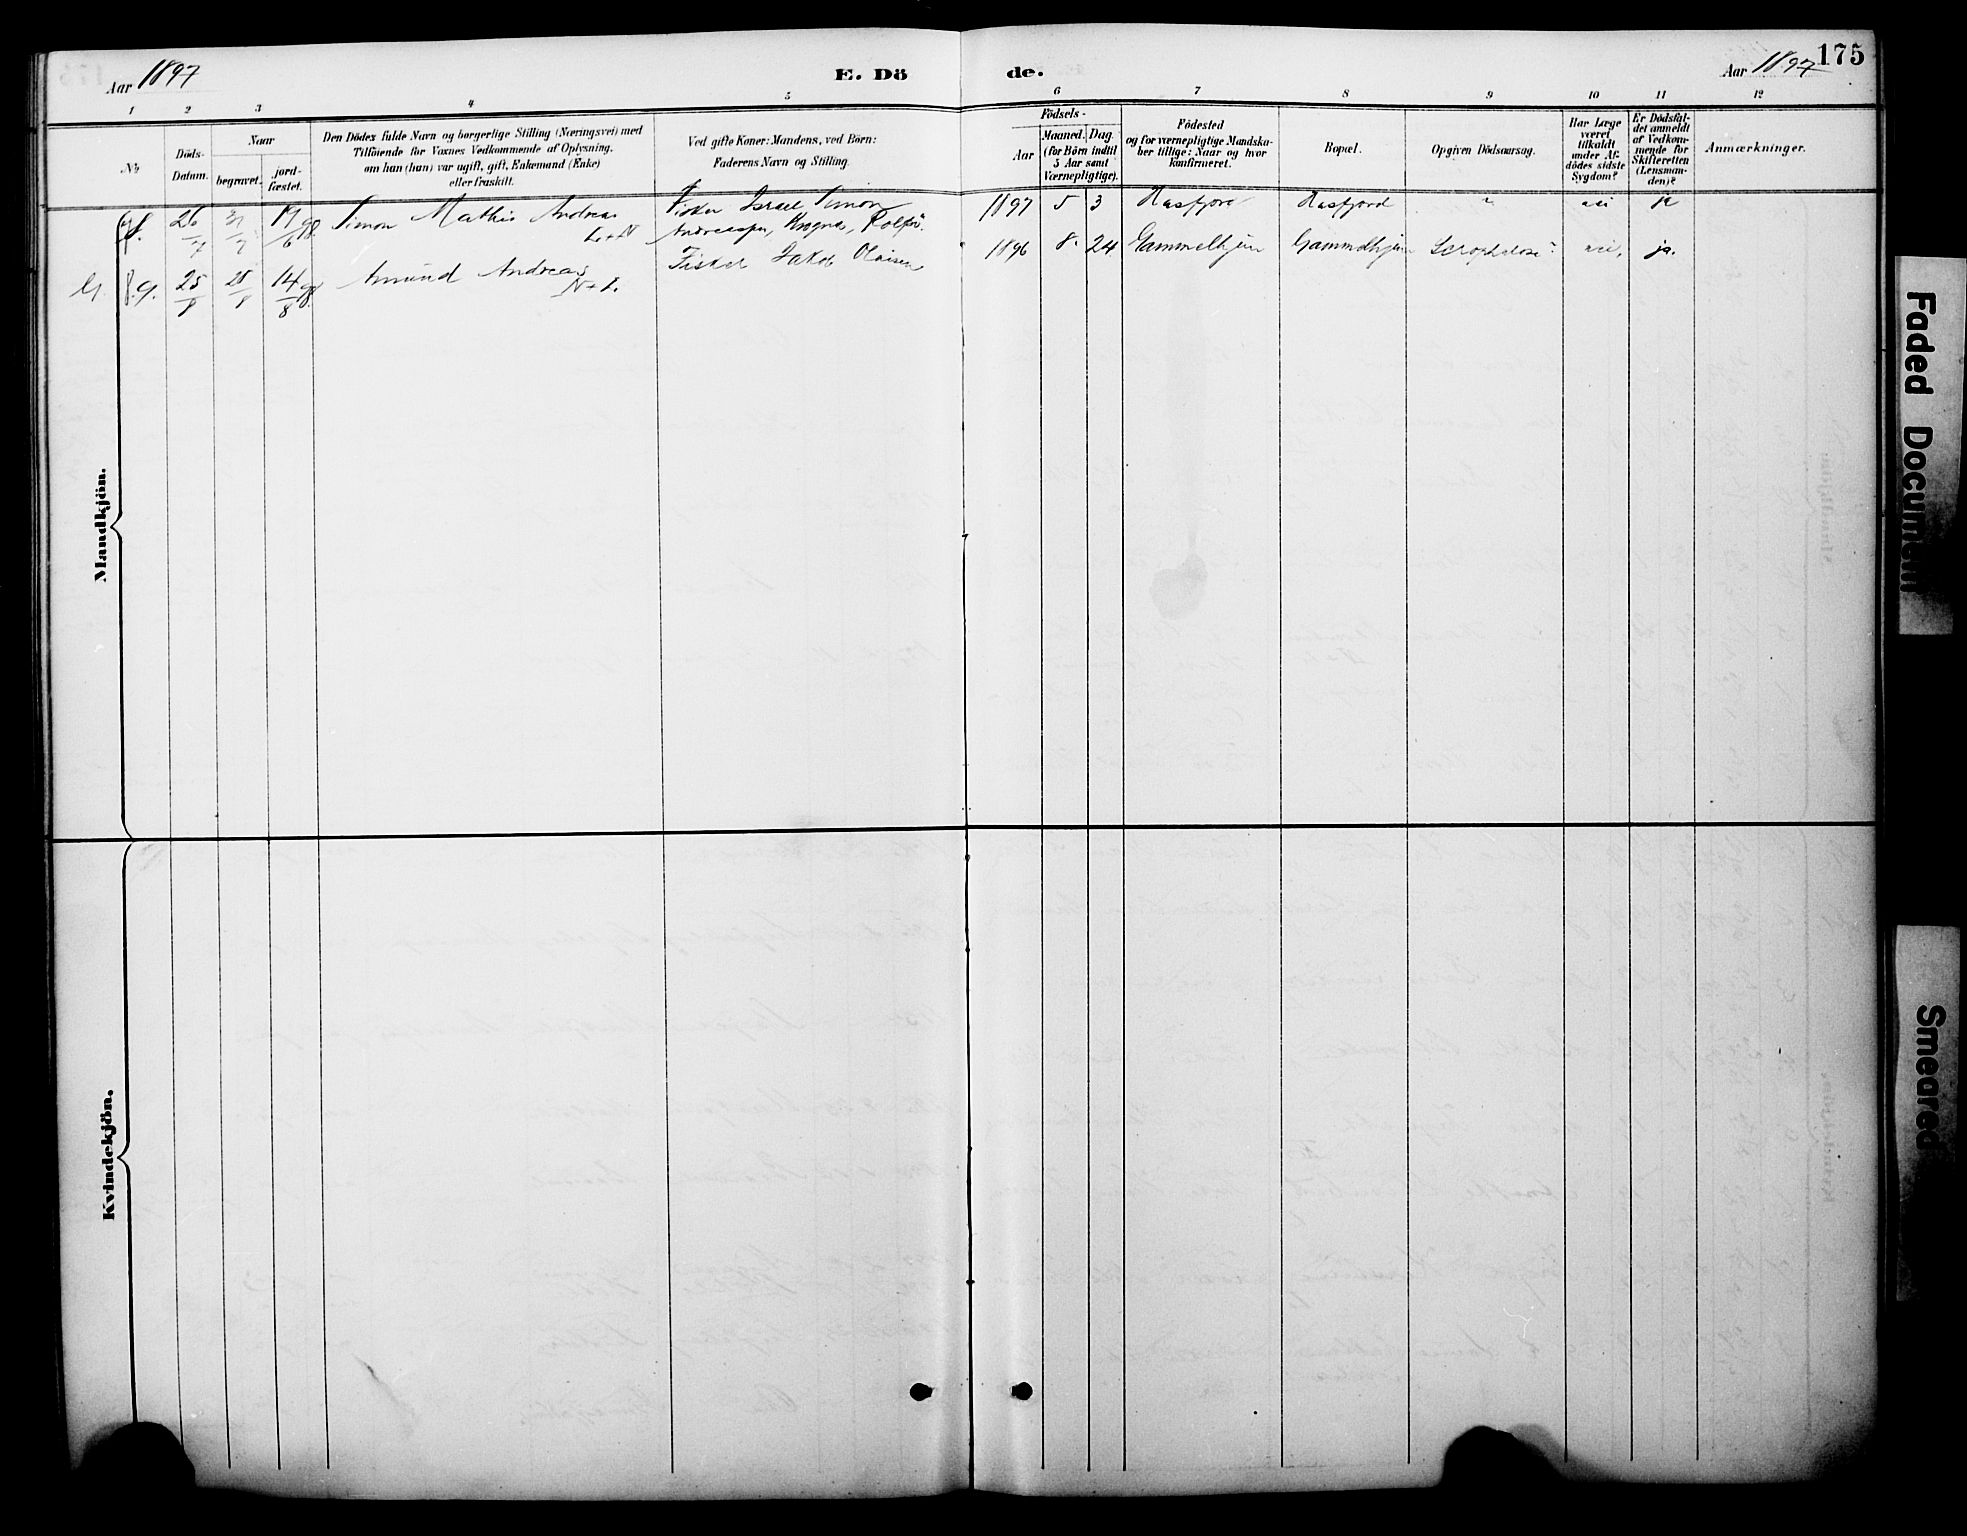 Aar 1897
E. Dö
de.
Aar 1897
175
1 2 3 4 5 6 7 8 9 10 11 12
No
Döds-
Datum.
Naar
begravet.
jord-
fæstet.
Den Dödes fulde Navn og borgerlige Stilling (Næringsvei) med
Tilföiende for Voxnes Vedkommende af Oplysning,
om han (hun) var ugift, gift, Enkemand (Enke)
eller fraskilt.
Ved gifte Koner: Mandens, ved Börn:
Faderens Navn og Stilling.
Födsels-
Aar
Maaned. Dag.
(for Börn indtil
5 Aar samt
Værnepligtige).
Födested
og for værnepligtige Mandska-
ber tillige: Naar og hvor
konfirmeret.
Bopæl.
Opgiven Dödsaarsag.
Har Læge
været
tilkaldt
under Af-
dödes sidste
Sygdom?
Er Dödsfal-
det anmeldt
af Vedkom-
mende for
Skifteretten
(Lensman-
den)?
Anmærkninger.
Mandkjön.
8. 26/7 31/7 19/6 98. Simon Mathis Andreas L+N Fisker Israel Simon 1897 5 3 Hasfjord Hasfjord nei ja
Andreassen, Rolfsö.
9. 25/8 28/8 14/8 98. Amund Andreas N+L. Fisker Jakob Olaisen 1896 8. 24 Gammelhjem Gammelhjem Scrophelose? nei, ja.
Kvindekjön.
Faded Document
Smeared